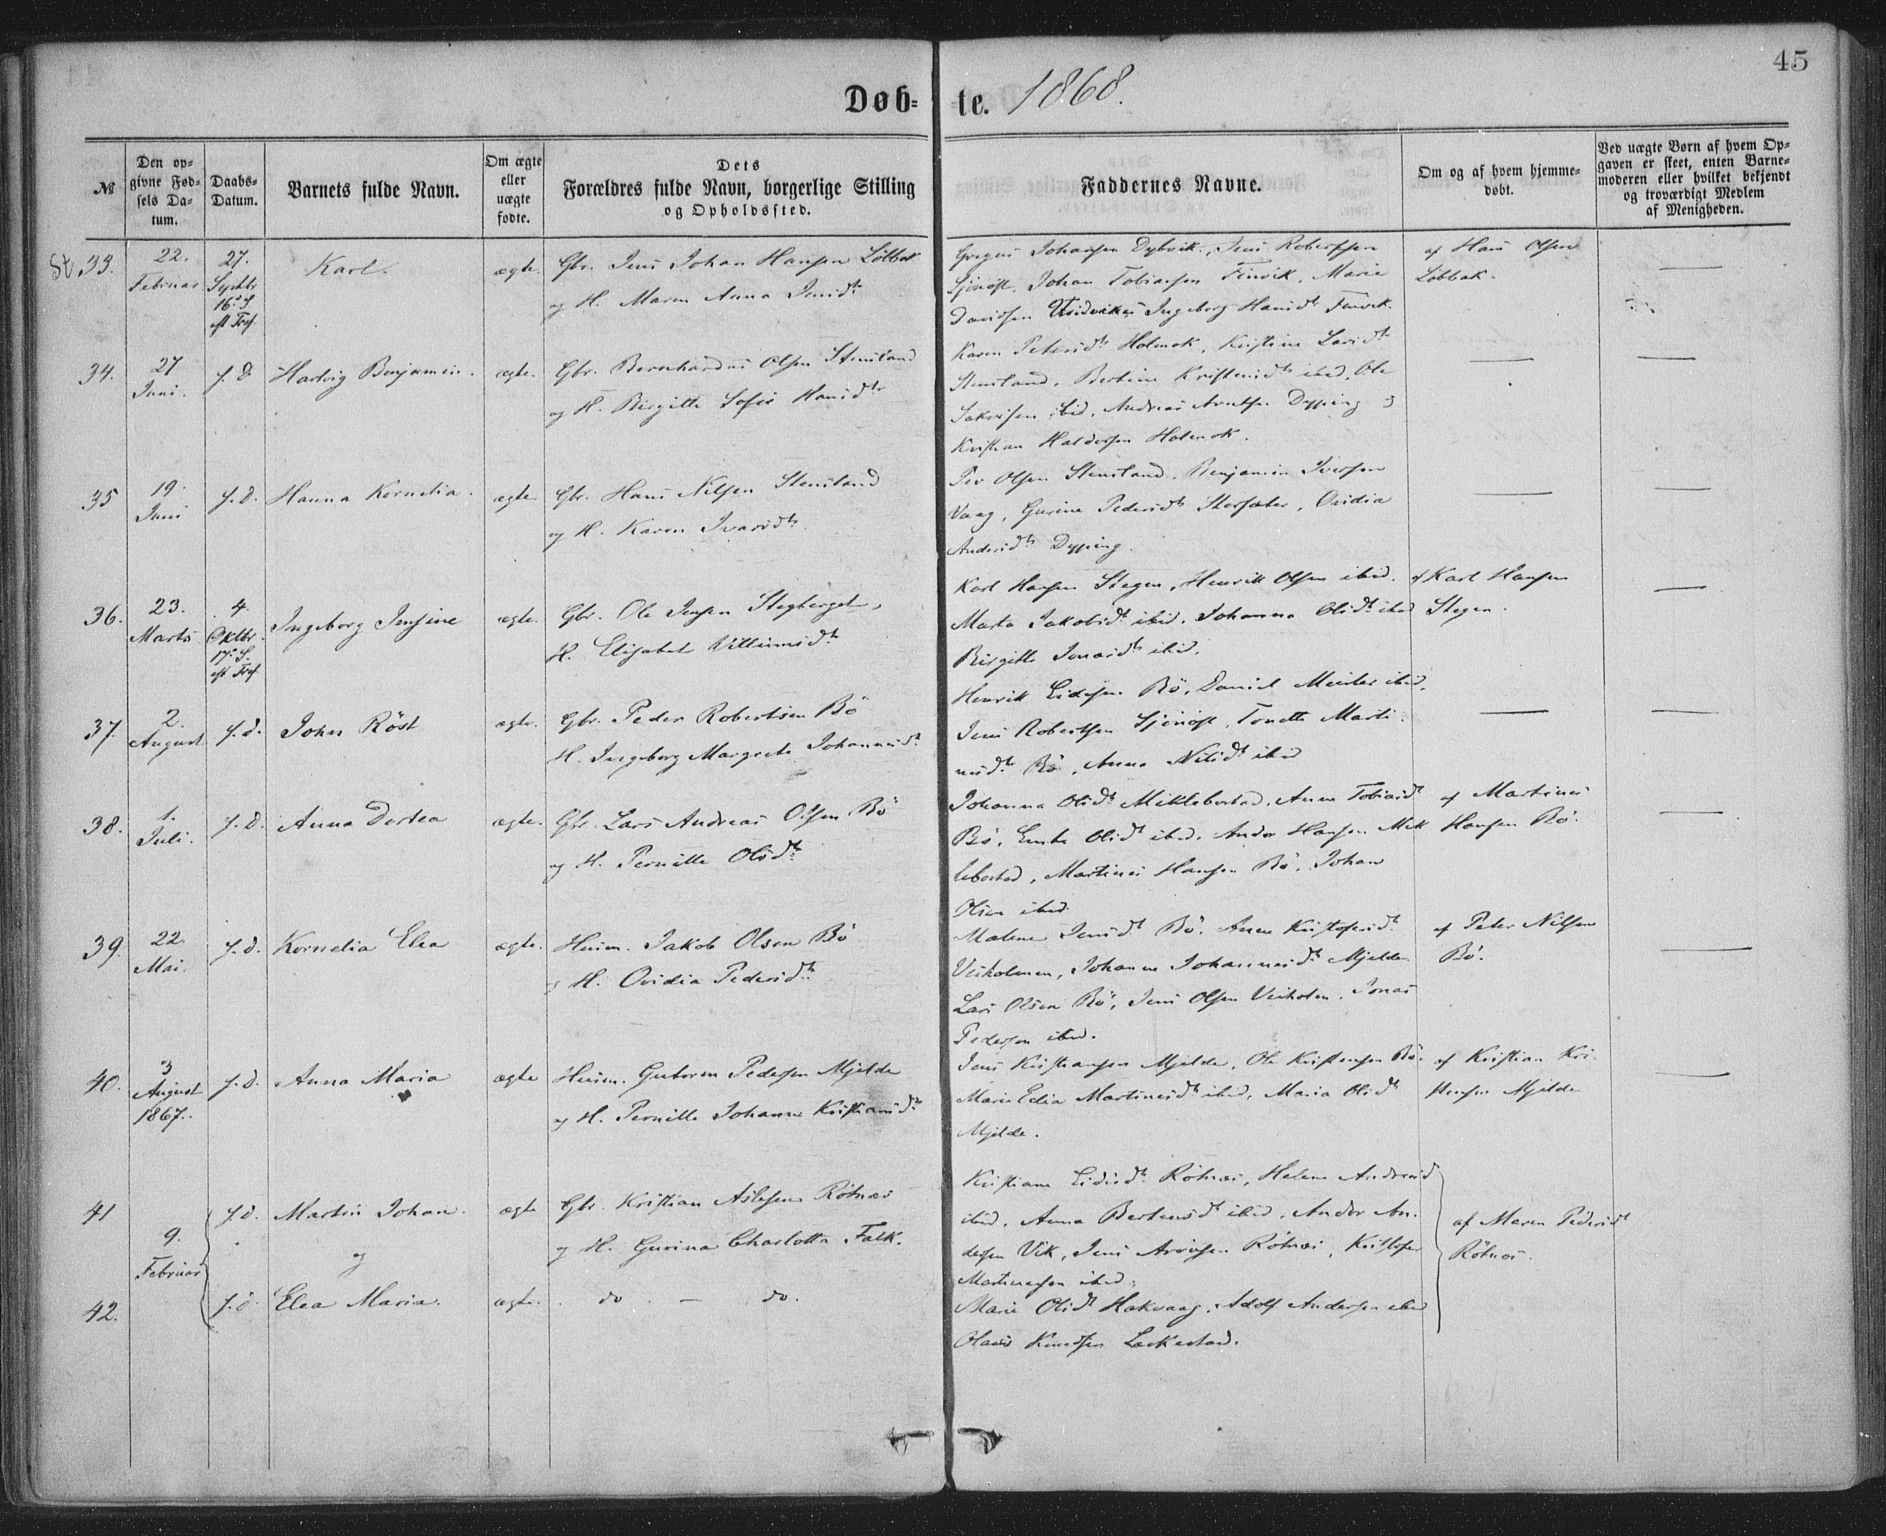 45
Døb-te. 1868.
№
Den opgivne Fødsels Datum.
Daabs-Datum.
Barnets fulde Navn.
Om ægte eller uægte fødte.
Dets Forældres fulde Navn, borgerlige Stilling og Opholdssted.
Faddernes Navne.
Om og af hvem hjemmedøbt.
Ved uægte Børn af hvem Opgaven er skeet, enten Barnemoderen eller hvilket bekjendt troværdigt Medlem af Menigheden.
St 33. 22. Februar 27. Septbr 16. S. eft Tref. Karl. ægte. Gbr. Jens Johan Hansen Löbbak
og H. Maren Anna Jensdtr
Gregus Johansen Dybvik, Jens Robertsen
Johan Tobiassen Finvik, Marie
Davidsen Ingeborg Hansdtr Finvik.
af Hans Olsen
Löbbak.
34. 27 Juni. s.d. Hartvig Benjamin. ægte. Gbr. Bernhardus Olsen Stensland
og H. Birgitte Sofie Hansdtr
Karen Petersdtr Holmok, Kristine Larsdtr
Stensland, Bertine Kristensdtr ibid, Ole
ibid, Andreas Arntsen Dypping &
Kristian Haldorsen Holmok.
35 19. Juni s.d. Hanna Kornelia. ægte Gbr. Hans Nilsen Stensland
og H. Karen Ivarsdtr
Per Olsen Stensland, Benjamin Iversen
Vaag, Gurine Pedersdtr Storsæter, Ovidia
Andersdtr Dypping.
36. 23. Marts 4. Oktbr. 17. S. eft Tref Ingeborg Jensine ægte. Gbr. Ole Jensen Stegberget,
H. Elisabet Villumsdtr
Karl Hansen Stegen, Henrik Olsen ibid.
Marta Jakobsdtr ibid. Johanna Olsdtr ibid
Birgitte Jonasdtr ibid.
af Karl Hansen
Stegen.
37. 2. August s.d. John Röst ægte. Gbr. Peder Robertsen Bö
H. Ingeborg Margrete Johannesdtr
Henrik Eidesen Bö, Daniel Meister ibid,
Jens Robertsen Tonette Marti-
nusdtr Bö, Anna Nilsdtr ibid
38. 1. Juli. s.d. Anna Dortea ægte. Gbr. Lars Andreas Olsen Bö
og H. Pernille Olsdtr
Johanna Olsdtr Miklebostad, Anne Tobiasdtr
Bö, Olsdtr ibid. Andor Hansen Mik
lebostad, Martines Hansen Bö, Johan
Olsen ibid.
af Martines
Hansen Bö.
39. 22. Mai. s.d. Kornelia Elea ægte. Husm. Jakob Olsen Bö
& H. Ovidia Pedersdtr
Malene Jensdtr Bö. Anne Kristofersdtr
Veiholmen, Johanne Johannesdtr Mjelde
Lars Olsen Bö, Jens Olsen Veiholm, Jonas
Pedersen ibid.
af Peter Nilsen
Bö.
40. 3 August 1867. s.d. Anna Maria ægte Husm. Guttorm Pedersen Mjelde
og H. Pernille Johanne Kristiansdtr
Jens Kristiansen Mjelde, Ole Kristensen Bö.
Marie Edia Martinusdtr ibid, Maria Olsdtr
Mjelde.
af Kristian Kri-
stensen Mjelde
41 9. Februar s.d. Martin Johan. ægte Gbr. Kristian Aslesen Rötnes
og
& H. Gurina Charlotta Falk.
Kristiane Eidisdtr Rötnes, Helene Andreasd
ibid, Anna Berteusdtr ibid. Andor An-
dersen Vik, Jens Rötnes, Kristofer
Martinussen ibid,
af Maren Pedersdtr
Rötnes.
42. s.d. Elea Maria. ægte. do — do.
Marie Olsdtr Hakvaag, Adolf Andersen ibid
Olaus Knudsen Laskestad.